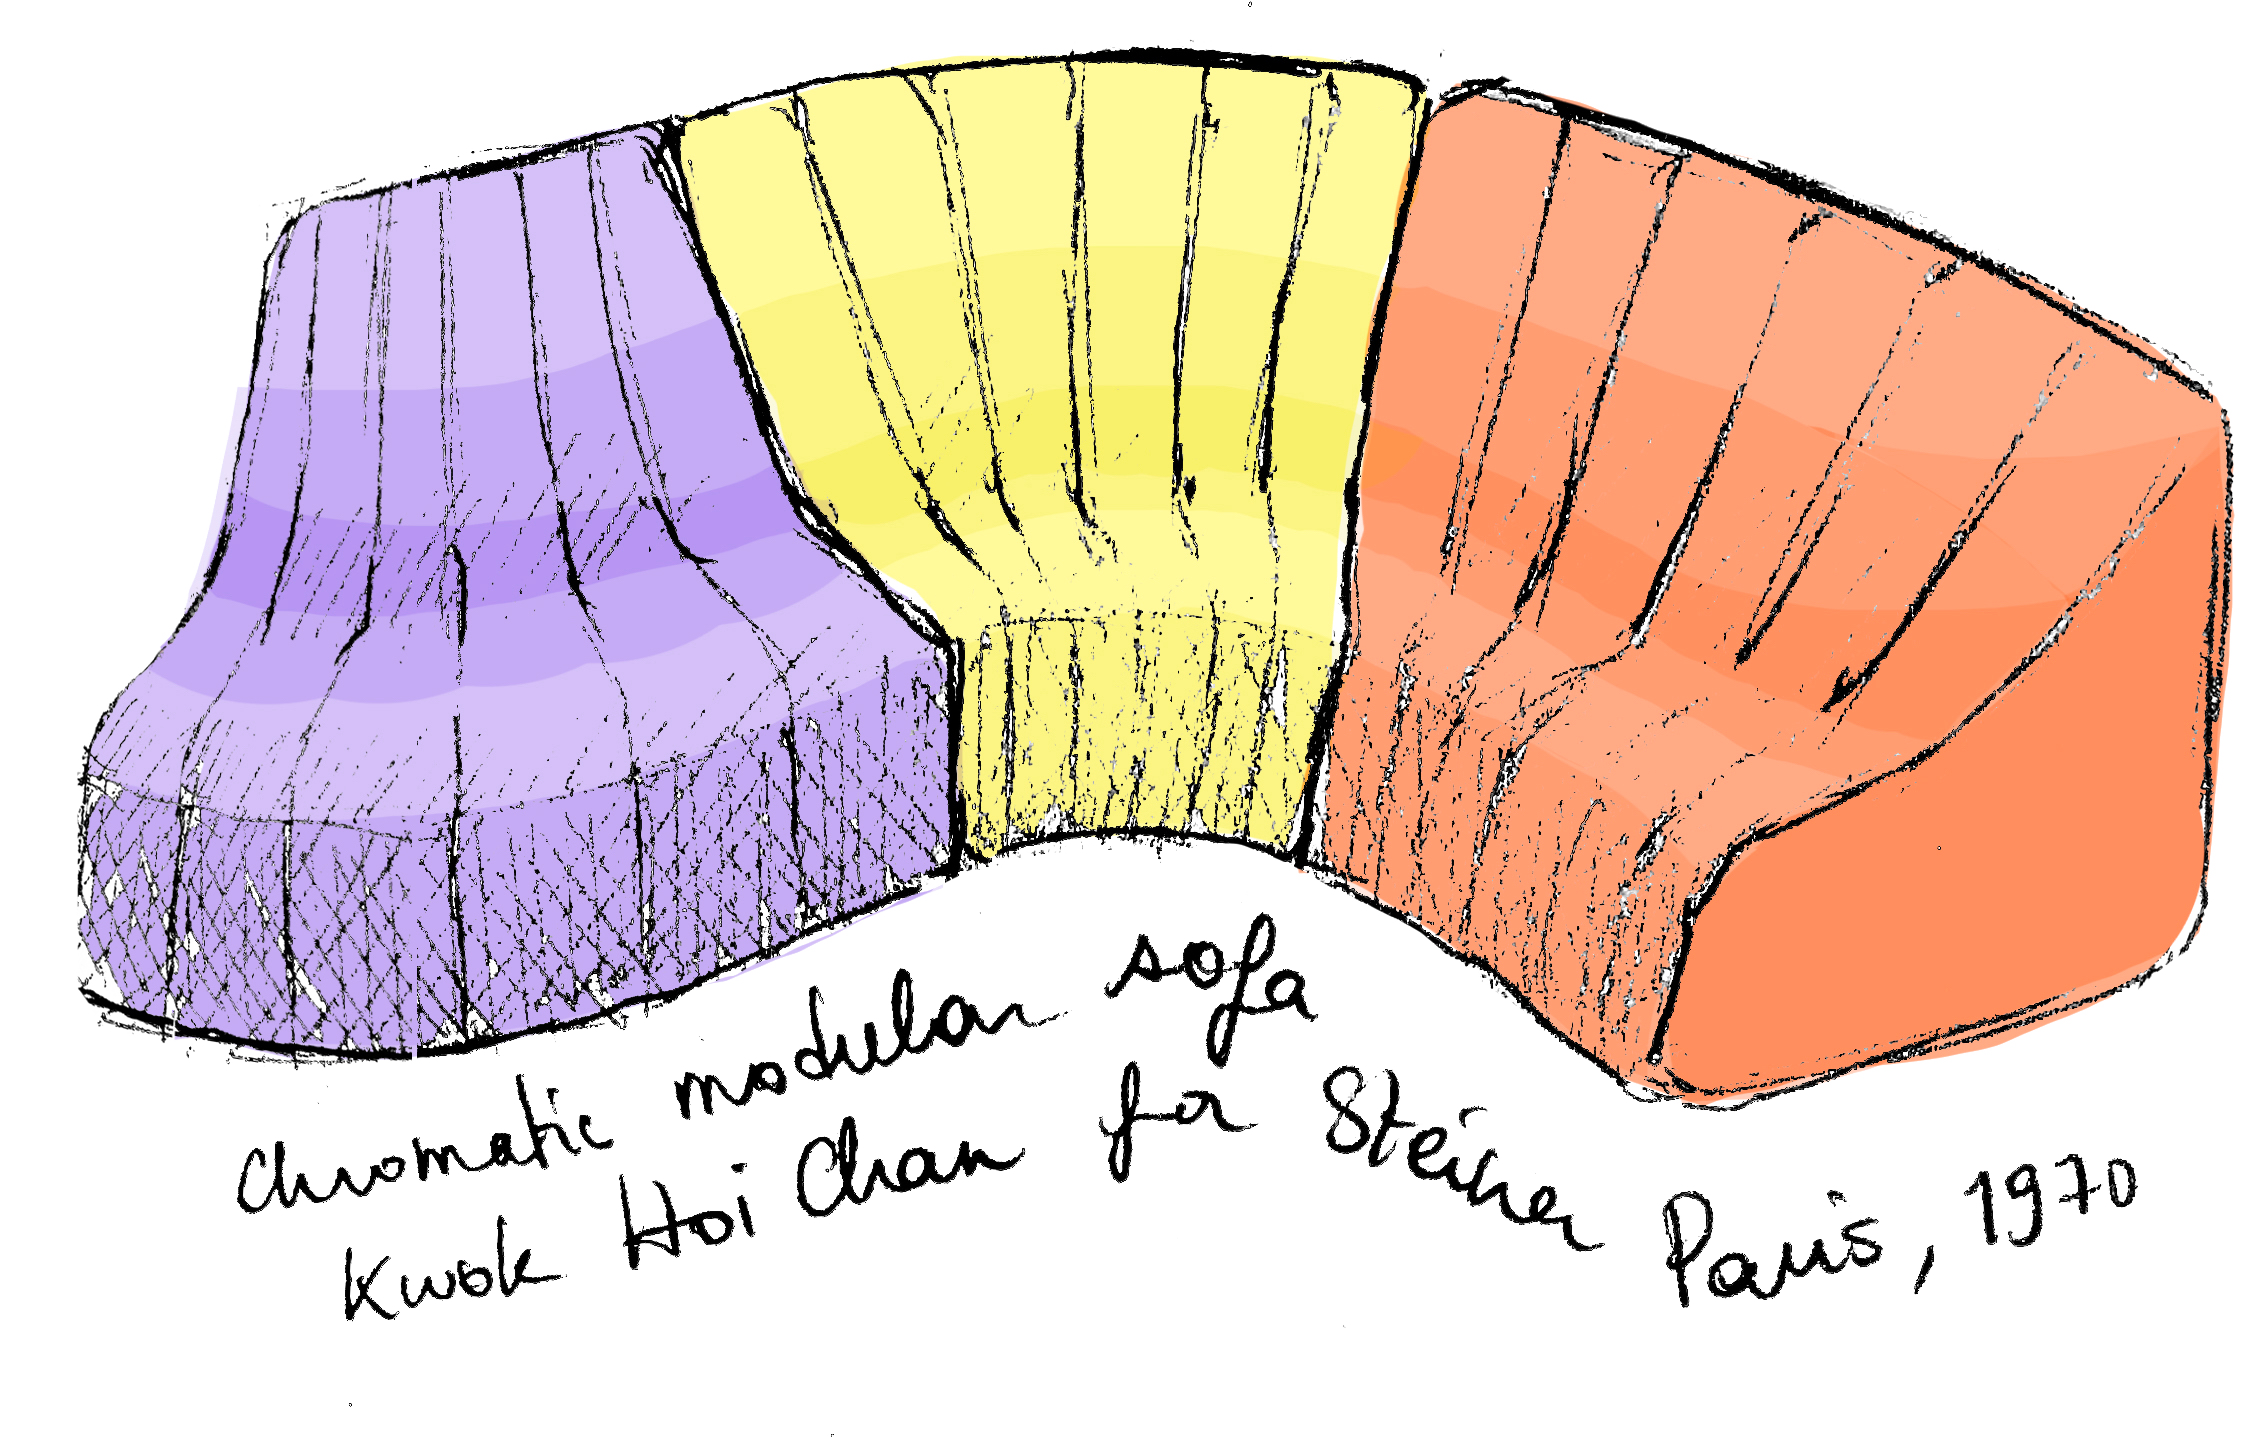 chromatic modular sofa
Kwok Hoi Chan for Steiner Paris, 1970